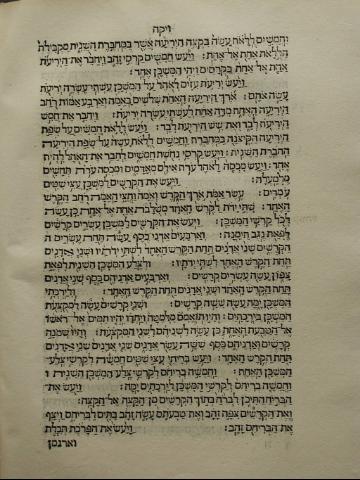 ויקה
וחמשים ללאת עשה בקצה היריעה אשר במחברת השנית מקבילת
הללאת אחת אל־אחת: ויעש חמשים קרסי זהב ויחבר את היריעת
אחת אל אחת בקרסים ויהי המשכן אחד:
ויעש יריעת עזים לאהל על המשכן עשתי עשרה יריעת
עשה אתם: ארך היריעה האחת שלשים באמה וארבע אמות רחב
היריעה האחת מדה אחת לעשתי עשרה יריעת: ויחבר את חמש
היריעת לבד ואת שש היריעת לבד: ויעש ללאת חמשים על שפת
היריעה הקיצנה במחברת וחמשים ללאת עשה על שפת היריעה
החברת השנית: ויעש קרסי נחשת חמשים לחבר את האהל להית
אחד: ויעש מכסה לאהל ערת אילם מאדמים ומכסה ערת תחשים
מלמעלה: ויעש את הקרשים למשכן עצי שטים
עמדים: עשר אמת ארך הקרש ואמה וחצי האמה רחב הקרש
האחד: שתי ידת לקרש האחד משלבת אחת אל אחת כן עשה
לכל קרשי המשכן: ויעש את הקרשים למשכן עשרים קרשים
לפאת נגב תימנה: וארבעים אדני כסף עשה תחת עשרים ה
הקרשים שני אדנים תחת הקרש האחד לשתי ידתיו ושני אדנים
תחת הקרש האחד לשתי ידתיו: ולצלע המשכן השנית לפאת
צפון עשה עשרים קרשים: וארבעים אדניהם כסף שני אדנים
תחת הקרש האחד ושני אדנים תחת הקרש האחד: ולירכתי
המשכן ימה עשה ששה קרשים: ושני קרשים עשה למקצעת
המשכן בירכתים: והיו תואמם מלמטה ויחדו יהיו תמים אל ראשו
אל הטבעת האחת כן עשה לשניהם לשני המקצעת: והיו שמנה
קרשים ואדניהם כסף ששה עשר אדנים שני אדנים שני אדנים
תחת הקרש האחד: ויעש בריחי עצי שטים חמשה לקרשי צלע
המשכן האחת: וחמשה בריחם לקרשי צלע המשכן השנית ו
וחמשה בריחם לקרשי המשכן לירכתים ימה: ויעש את
הבריח התיכן לברח בתוך הקרשים מן הקצה אל הקצה:
ואת הקרשים צפה זהב ואת טבעתם עשה זהב בתים לבריחם ויצף
את הבריחם זהב: ויעש את הפרכת תכלת
וארגמן